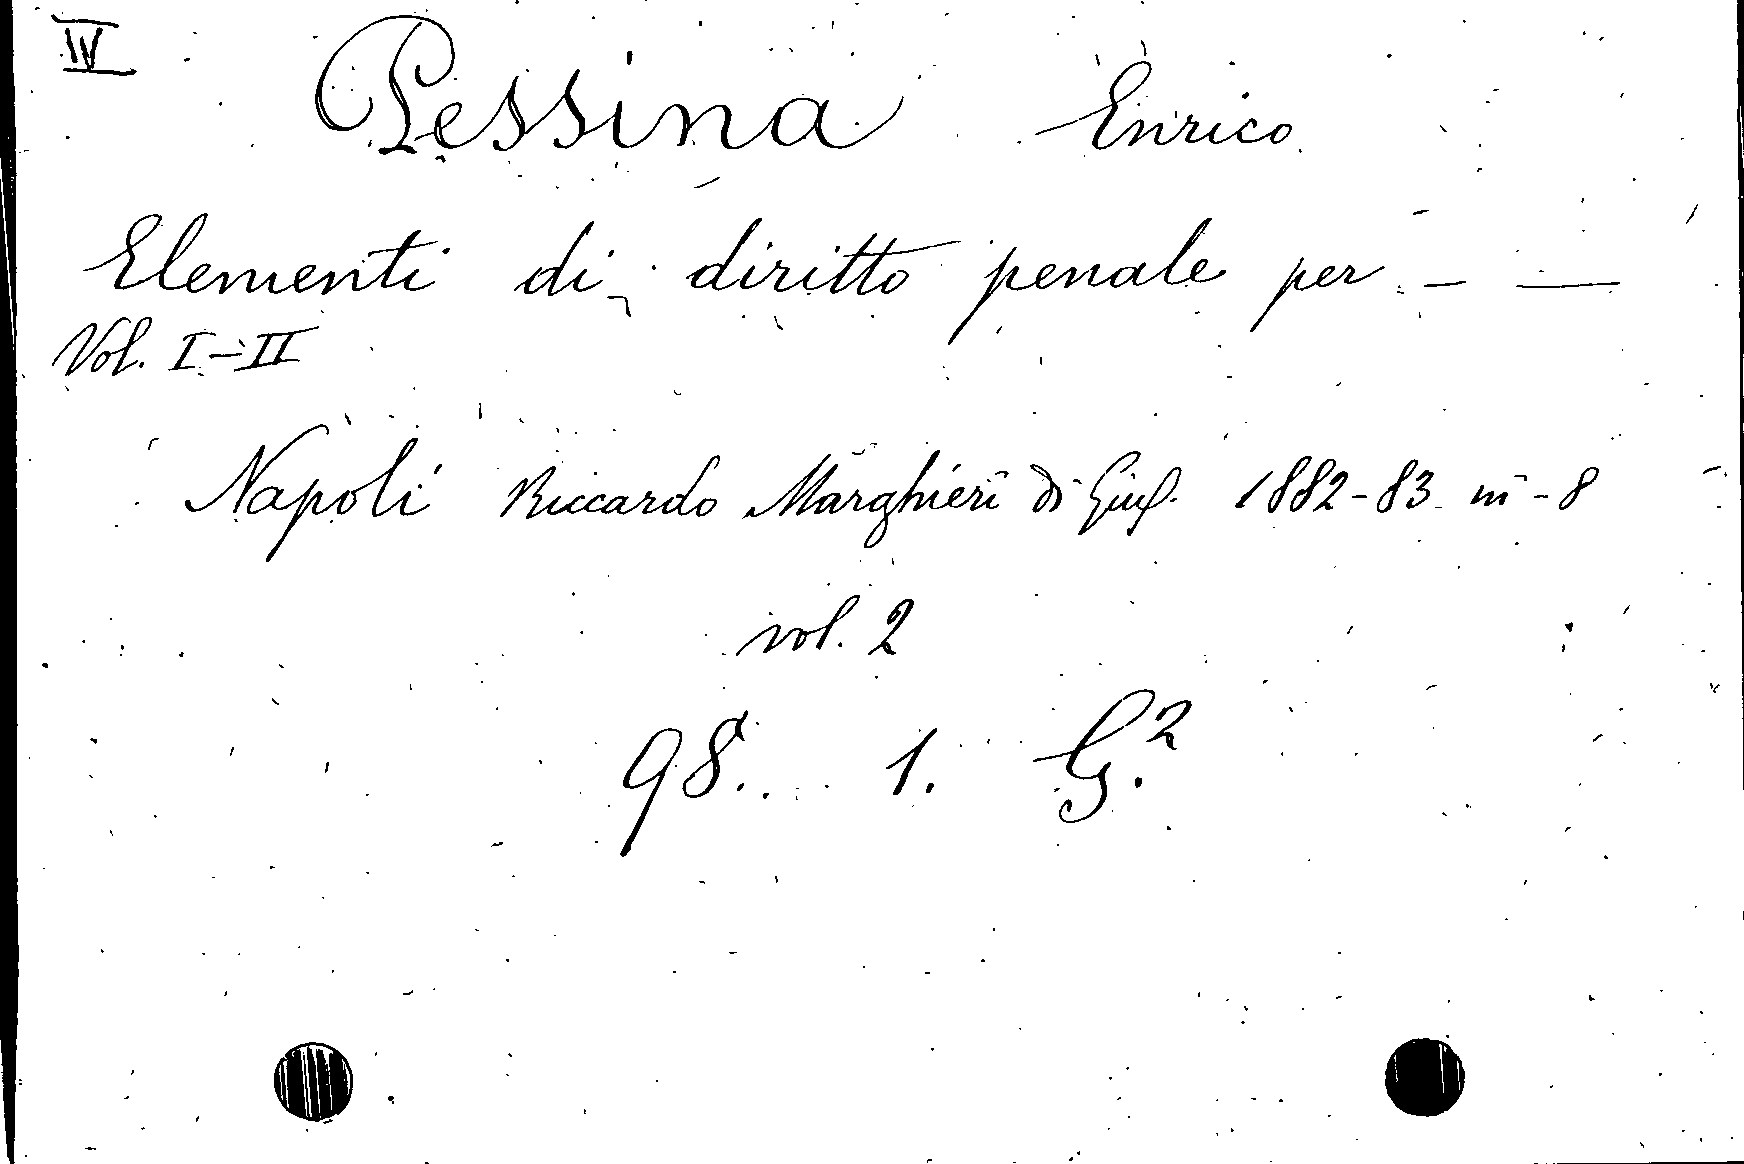 IV
Pessina Enrico
Elementi di diritto penale per – —
Vol. I–II
Napoli Riccardo Marghieri di Gius. 1882-83 in-8
vol. 2
98. 1. G.²